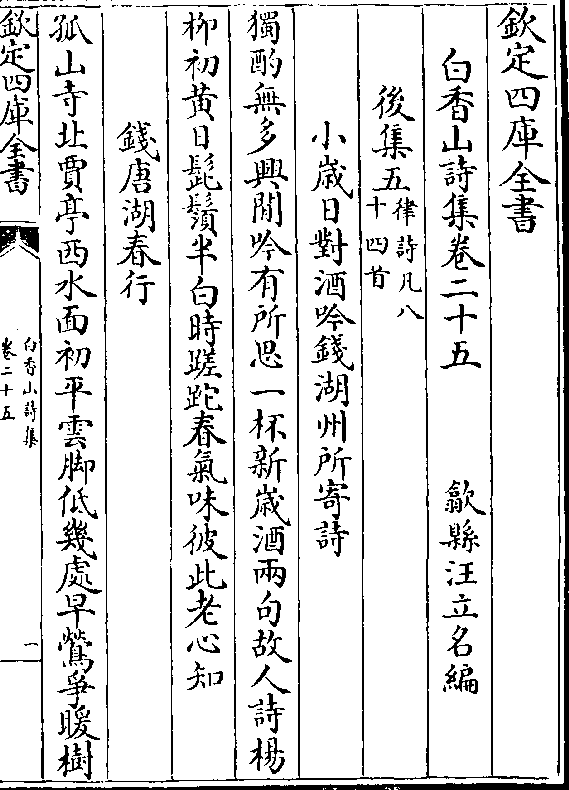 欽定四庫全書
白香山詩集卷二十五　歙縣汪立名編
後集五律詩凡八十四首
小歲日對酒吟錢湖州所寄詩
獨酌無多興閒吟有所思一杯新歲酒兩句故人詩楊
柳初黃日髭鬚半白時蹉跎春氣味彼此老心知
錢唐湖春行
孤山寺北賈亭西水面初平雲脚低幾處早鶯爭暖樹
欽定四庫全書
白香山詩集
卷二十五
一